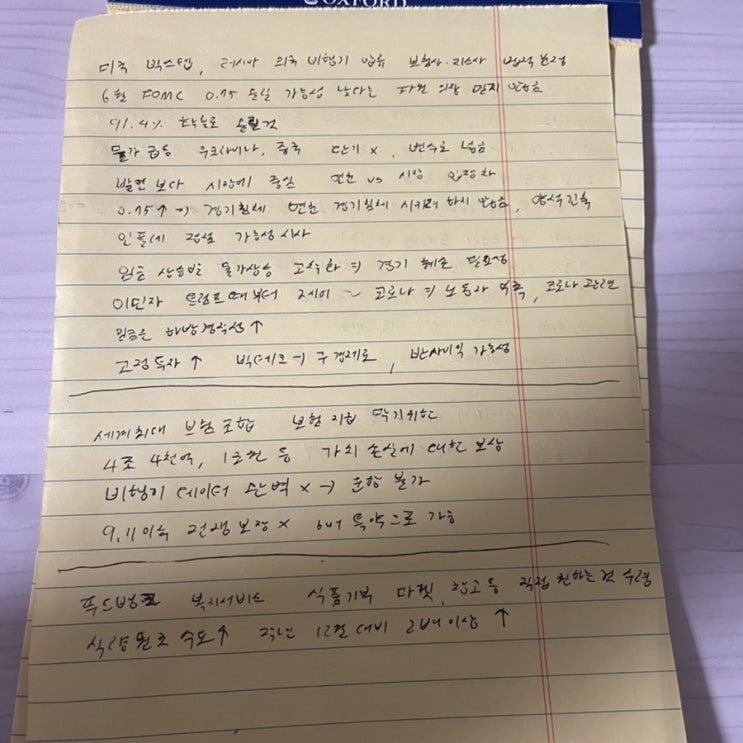 OXFORD
미국 빅스텝, 러시아 외국 비행기 압류 보험사·리스사 법적 분쟁
6월 FOMC 0.75 올릴 가능성 낮다는 파월 의장 믿지 않음
91.4% 확률로 올릴 것
물가 급등 우크라이나, 중국 단기 x, 변수로 넘음
발언보다 시장에 중심 연준 vs 시장 입장차
0.75↑ → 경기침체 연준 경기침체 시키려 하지 않음, 양적긴축
인플레 정점 가능성 시사
임금 상승발 물가상승 고착화 → 경기 체크 필요성
이민자 트럼프때부터 제어 ~ 코로나 → 노동자 위축, 코로나 관련
임금은 하방경직성↑
고정투자↑ 빅테크 → 구경제로, 반사이익 가능성
세계최대 보험조합 보험지급 막기위한
4조 4천억, 1조원 등 가치 손실에 대한 보상
비행기 데이터 완벽 x → 운항 불가
9.11이후 전쟁보장 x but 특약으로 가능
푸드뱅크 복지서비스 식품기부 마켓, 창고 등 직접 원하는 것 수령
식량원조 수요↑ 작년 12월 대비 2배이상↑